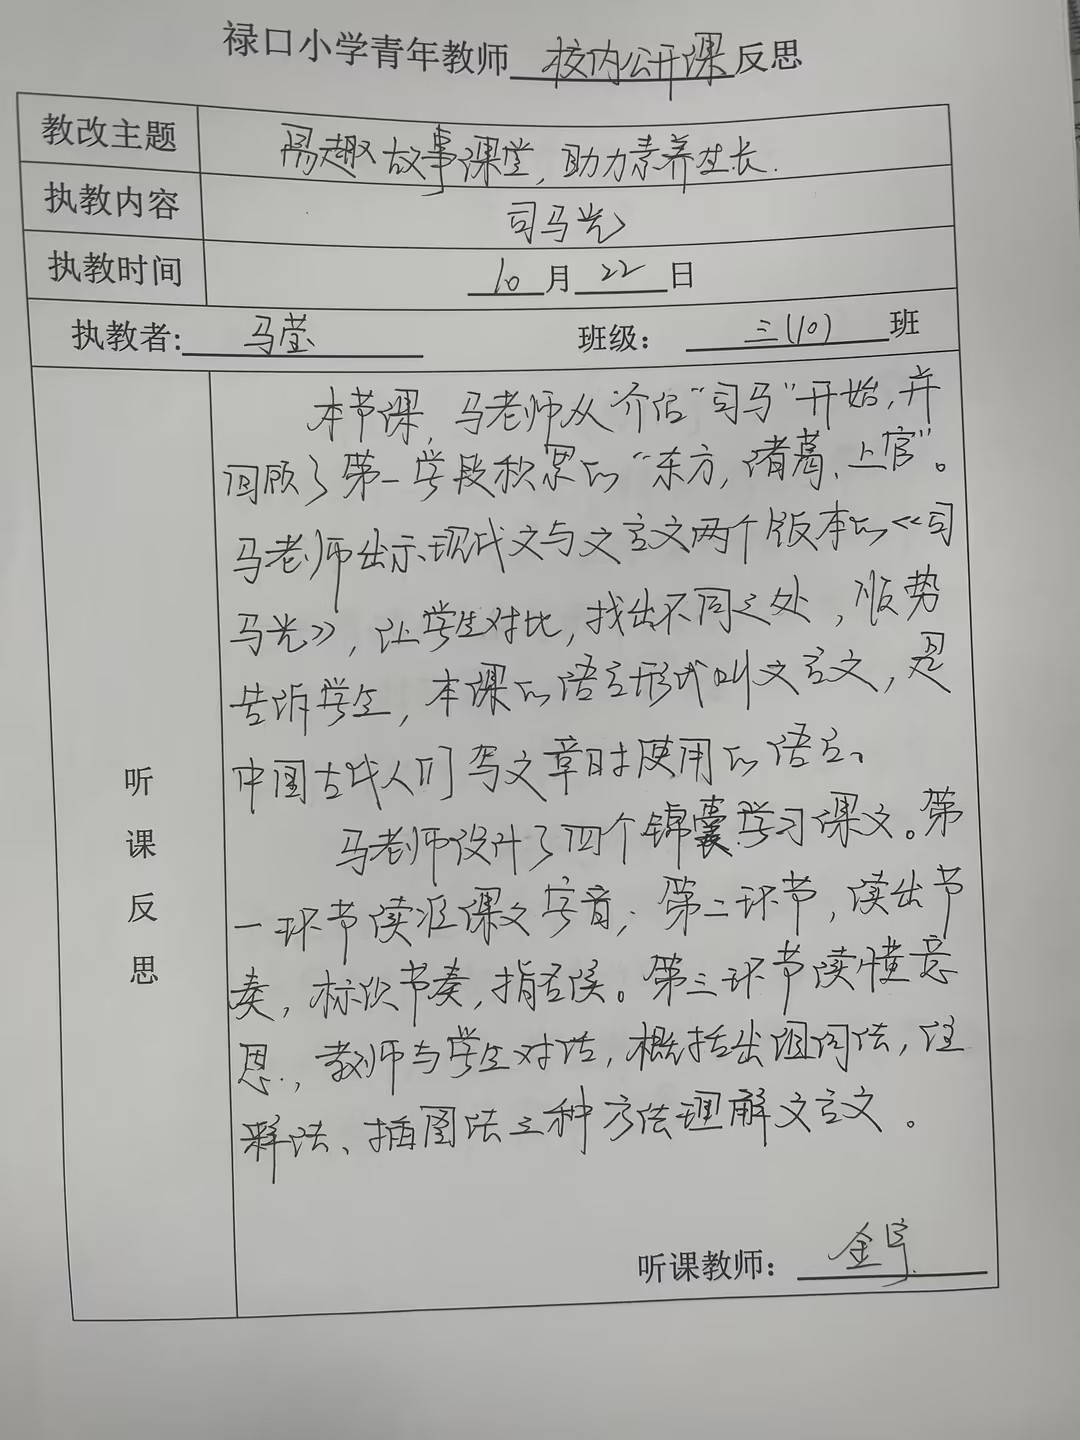 禄口小学青年教师 校内公开课 反思
教改主题 趣故事课堂，助力素养生长.
执教内容 司马光
执教时间 10 月 22 日
执教者: 马莹 班级： 三(10) 班
本节课，马老师从介绍“司马”开始，并
回顾了第一学段积累的“东方，诸葛、上官”。
马老师出示现代文与文言文两个版本的《司
马光》，让学生对比，找出不同之处，顺势
告诉学生，本课的语言形式叫文言文，是
中国古代人们写文章时使用的语言。
马老师设计了四个锦囊学习课文。第
一环节读准课文字音；第二环节，读出节
奏，标次节奏，指名读。第三环节读懂意
思，教师与学生对话，概括出组词法，注
释法、插图法三种方法理解文言文。
听
课
反
思
听课教师： 金宇